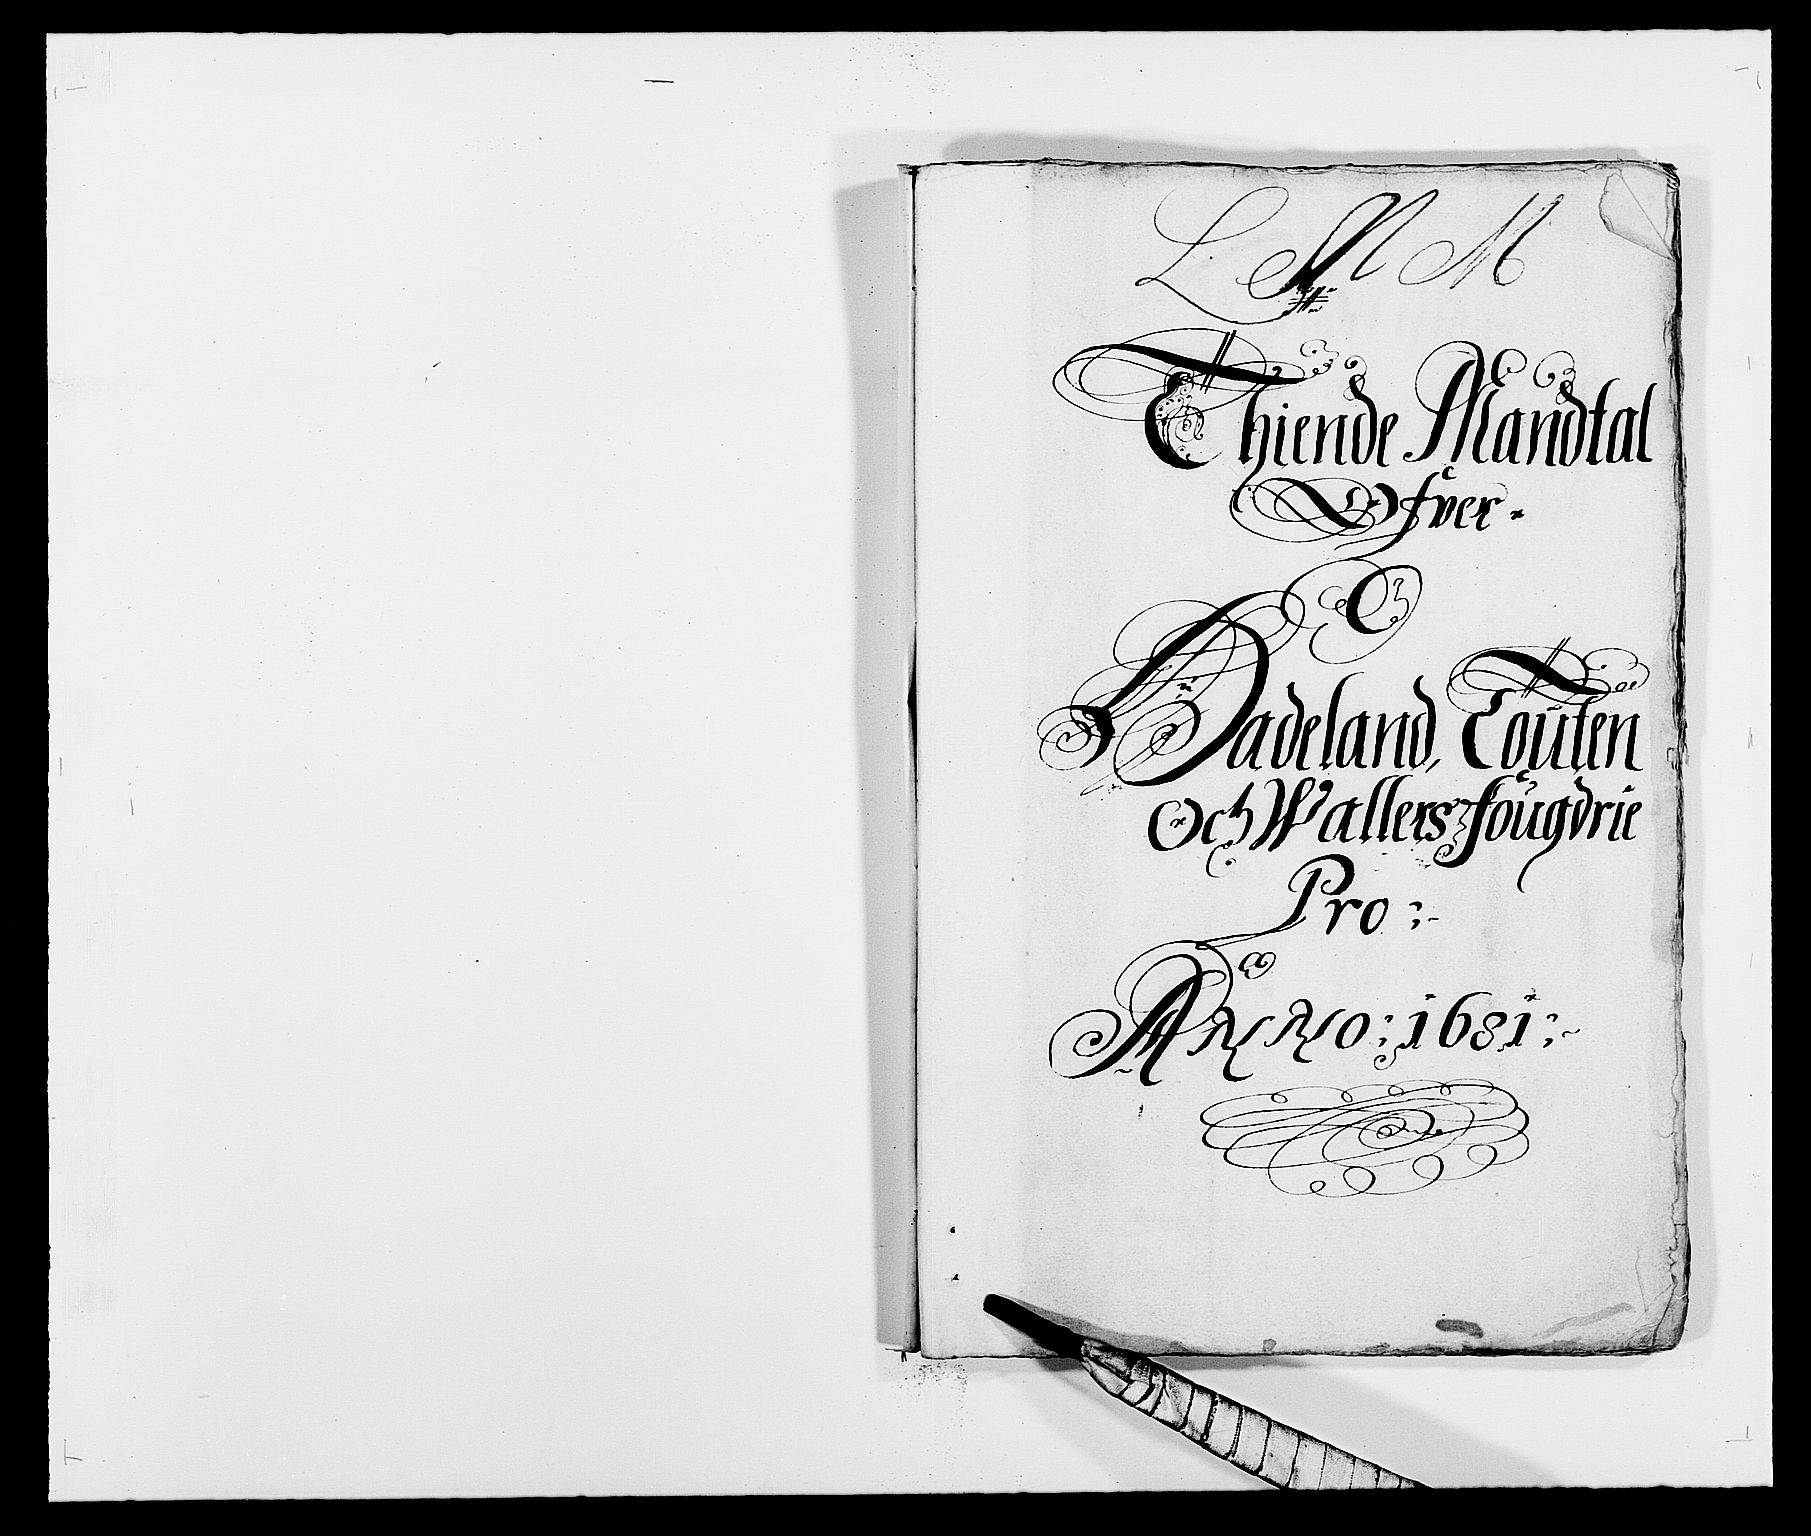 L N M
Thiende Mandtal
Ofver
Hadeland, Toūten
Och Wallers foūgdrie
Pro:
Anno: 1681: